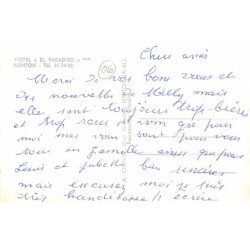 HOTEL « EL PARADISO » ***
MENTON - Tél.
06
Chers amis
Merci de vos bons vœux et
des nouvelles de Milly mais
elles sont toujours trop brèves
et trop rares
moi mes vœux sont pour vous
tous en famille ainsi que pour
Louis et Juliette bien sincères
mais excusez moi je suis
très handicapée à écrire